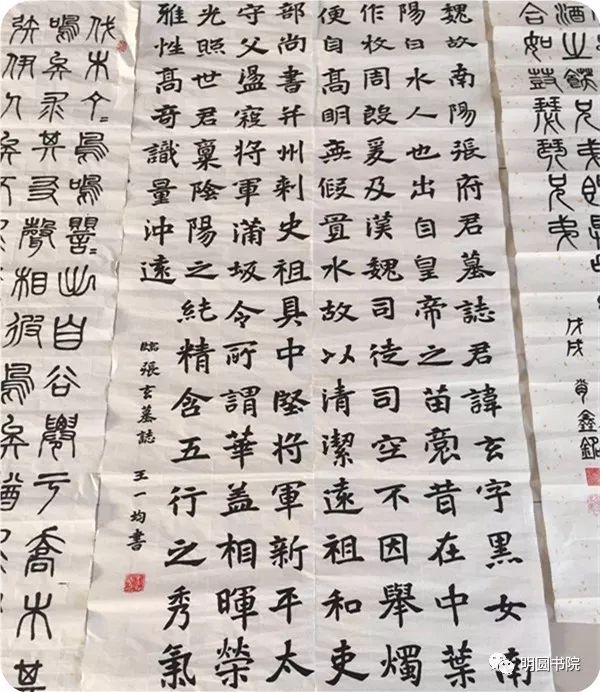 酒之飫兄弟既
合如鼓瑟琴兄弟
戊戌 鑫銘
魏故南陽張府君墓誌君諱玄字黑女南
陽白水人也出自皇帝之苗裔昔在中葉
作牧周殷爰及漢魏司徒司空不因舉燭
便自高明無假置水故以清潔遠祖和吏
部尚書并州刺史祖具中堅將軍新平太
守父盪寇將軍蒲坂令所謂華蓋相暉榮
光照世君稟陰陽之純精含五行之秀氣
雅性高奇識量沖遠
臨張玄墓誌 王一均書
伐木丁=鳥鳴嚶=出自谷遷于喬木其
鳴矣求其友聲相彼鳥矣猶
矧伊人矣不
明圆书院